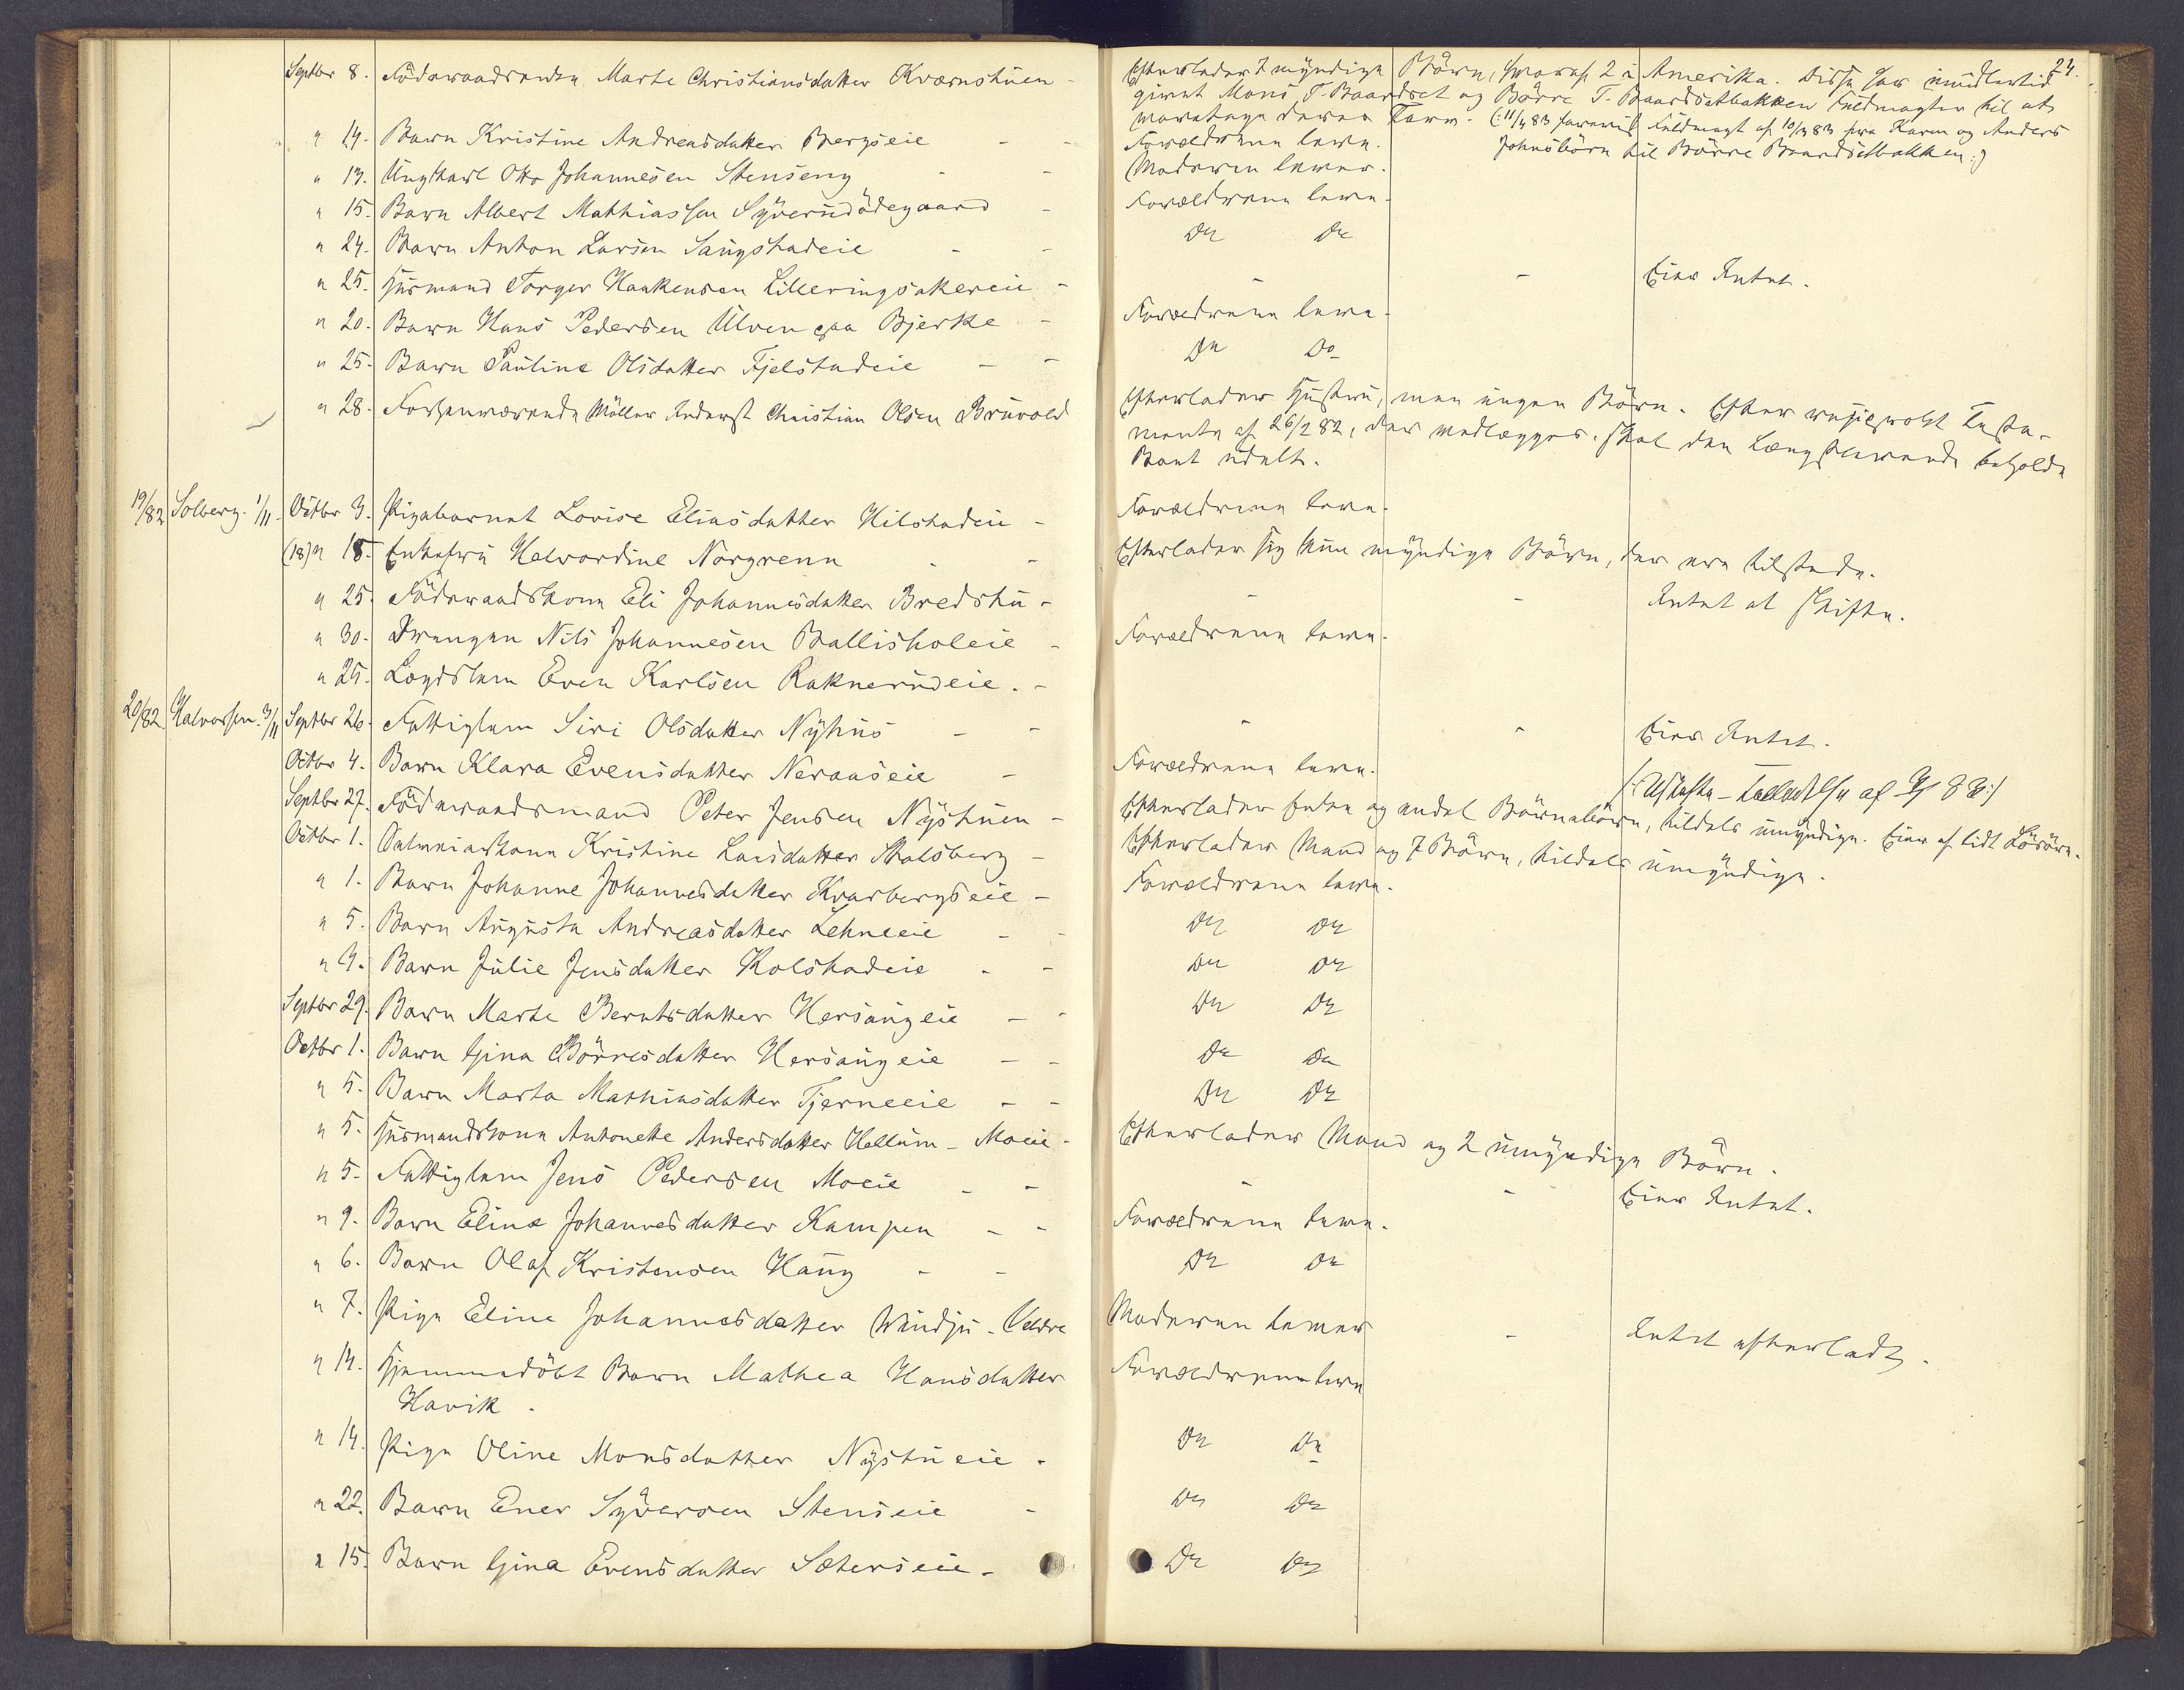 24.
Septbr 8. Föderaadsenken Marte Christiansdatter Kværnstuen - Efterlader 7 myndige Börn, hvoraf 2 i Amerika. Disse har imidlertid
givet Mons T. Baardset og Börre T. Baardsetbakken Fuldmagter til at
varetage deres Tarv. (: 11/4 83 forevist Fuldmagt af 10/3 83 fra Karen og Anders
Johnsbörn til Börre Baardsetbakken :)
" 14. Barn Kristine Andreasdatter Bergseie - - Forældrene leve.
" 13. Ungkarl Otto Johannesen Stenseng - - Moderen lever.
" 15. Barn Albert Mathiassen Syverudödegaard - Forældrene leve.
" 24. Barn Anton Larsen Saugstadeie - - Do Do
" 25. Husmand Torger Haakensen Lilleringsakereie - - - Eier Intet.
" 20. Barn Hans Pedersen Ulven paa Bjerke - Forældrene leve.
" 25. Barn Pauline Olsdatter Fjelstadeie - - Do Do
" 28. Forhenværende Möller Inderst Christian Olsen Bruvold Efterlader Hustru, men ingen Börn. Efter reciprokt Testa-
mente af 26/2 82, der medlægges, skal den Længstlevende beholde
Boet udelt.
19/82 Solberg. 1/11. Octbr 3. Pigebarnet Lovise Eliasdatter Hilstadeie - Forældrene leve.
(18) " 18. Enkefru Halvordine Norgrenn - - Efterlader sig kun myndige Börn, der ere tilstede.
" 25. Föderaadskone Eli Johannesdatter Bredstu - - - Intet at skifte.
" 30. Drengen Nils Johannesen Ballisholeie - Forældrene leve.
" 25. Lægdslem Even Karlsen Raknerudeie. -
20/82. Halvorsen. 3/11 Septbr 26. Fattiglem Siri Olsdatter Nyhus - - - - Eier Intet.
Octbr 4. Barn Klara Evensdatter Neraaseie - Forældrene leve.
Septbr 27. Föderaadsmand Peter Jensen Nystuen - Efterlader Enke og endel Börnebörn, tildels umyndige. Eier af lidt Lösöre.
Octbr 1. Kristine Larsdatter Stalsberg - Efterlader Mand og 7 Börn, tildels umyndige.
" 1. Barn Johanne Johannesdatter Kvarbergseie - Forældrene leve.
" 5. Barn Augusta Andreasdatter Lehneeie - - Do Do
" 9. Barn Julie Jensdatter Kolstadeie - - Do Do
Septbr 29. Barn Marte Berntsdatter Hersaugeie - - Do Do
Octbr 1. Barn Gina Börresdatter Hersaugeie - - Do Do
" 5. Barn Marta Mathiasdatter Tjerneeie - - Do Do
" 5. Husmandskone Antonette Andersdatter Hellum - Moeie - Efterlader Mand og 2 umyndige Börn.
" 5. Fattiglem Jens Pedersen Moeie - - - - Eier Intet.
" 9. Barn Eline Johannesdatter Kampen - - Forældrene leve.
" 6. Barn Olaf Kristensen Haug - - Do Do
" 7. Pige Eline Johannesdatter Windju - Veldre Moderen lever - Intet efterladt.
" 14. Hjemmedöbt Barn Mathea Hansdatter Forældrene leve
Havik.
" 14. Pige Oline Monsdatter Nystueie - Do Do
" 22. Barn Ener Syversen Stenseie - Do Do
" 15. Barn Gina Evensdatter Sæterseie - Do Do